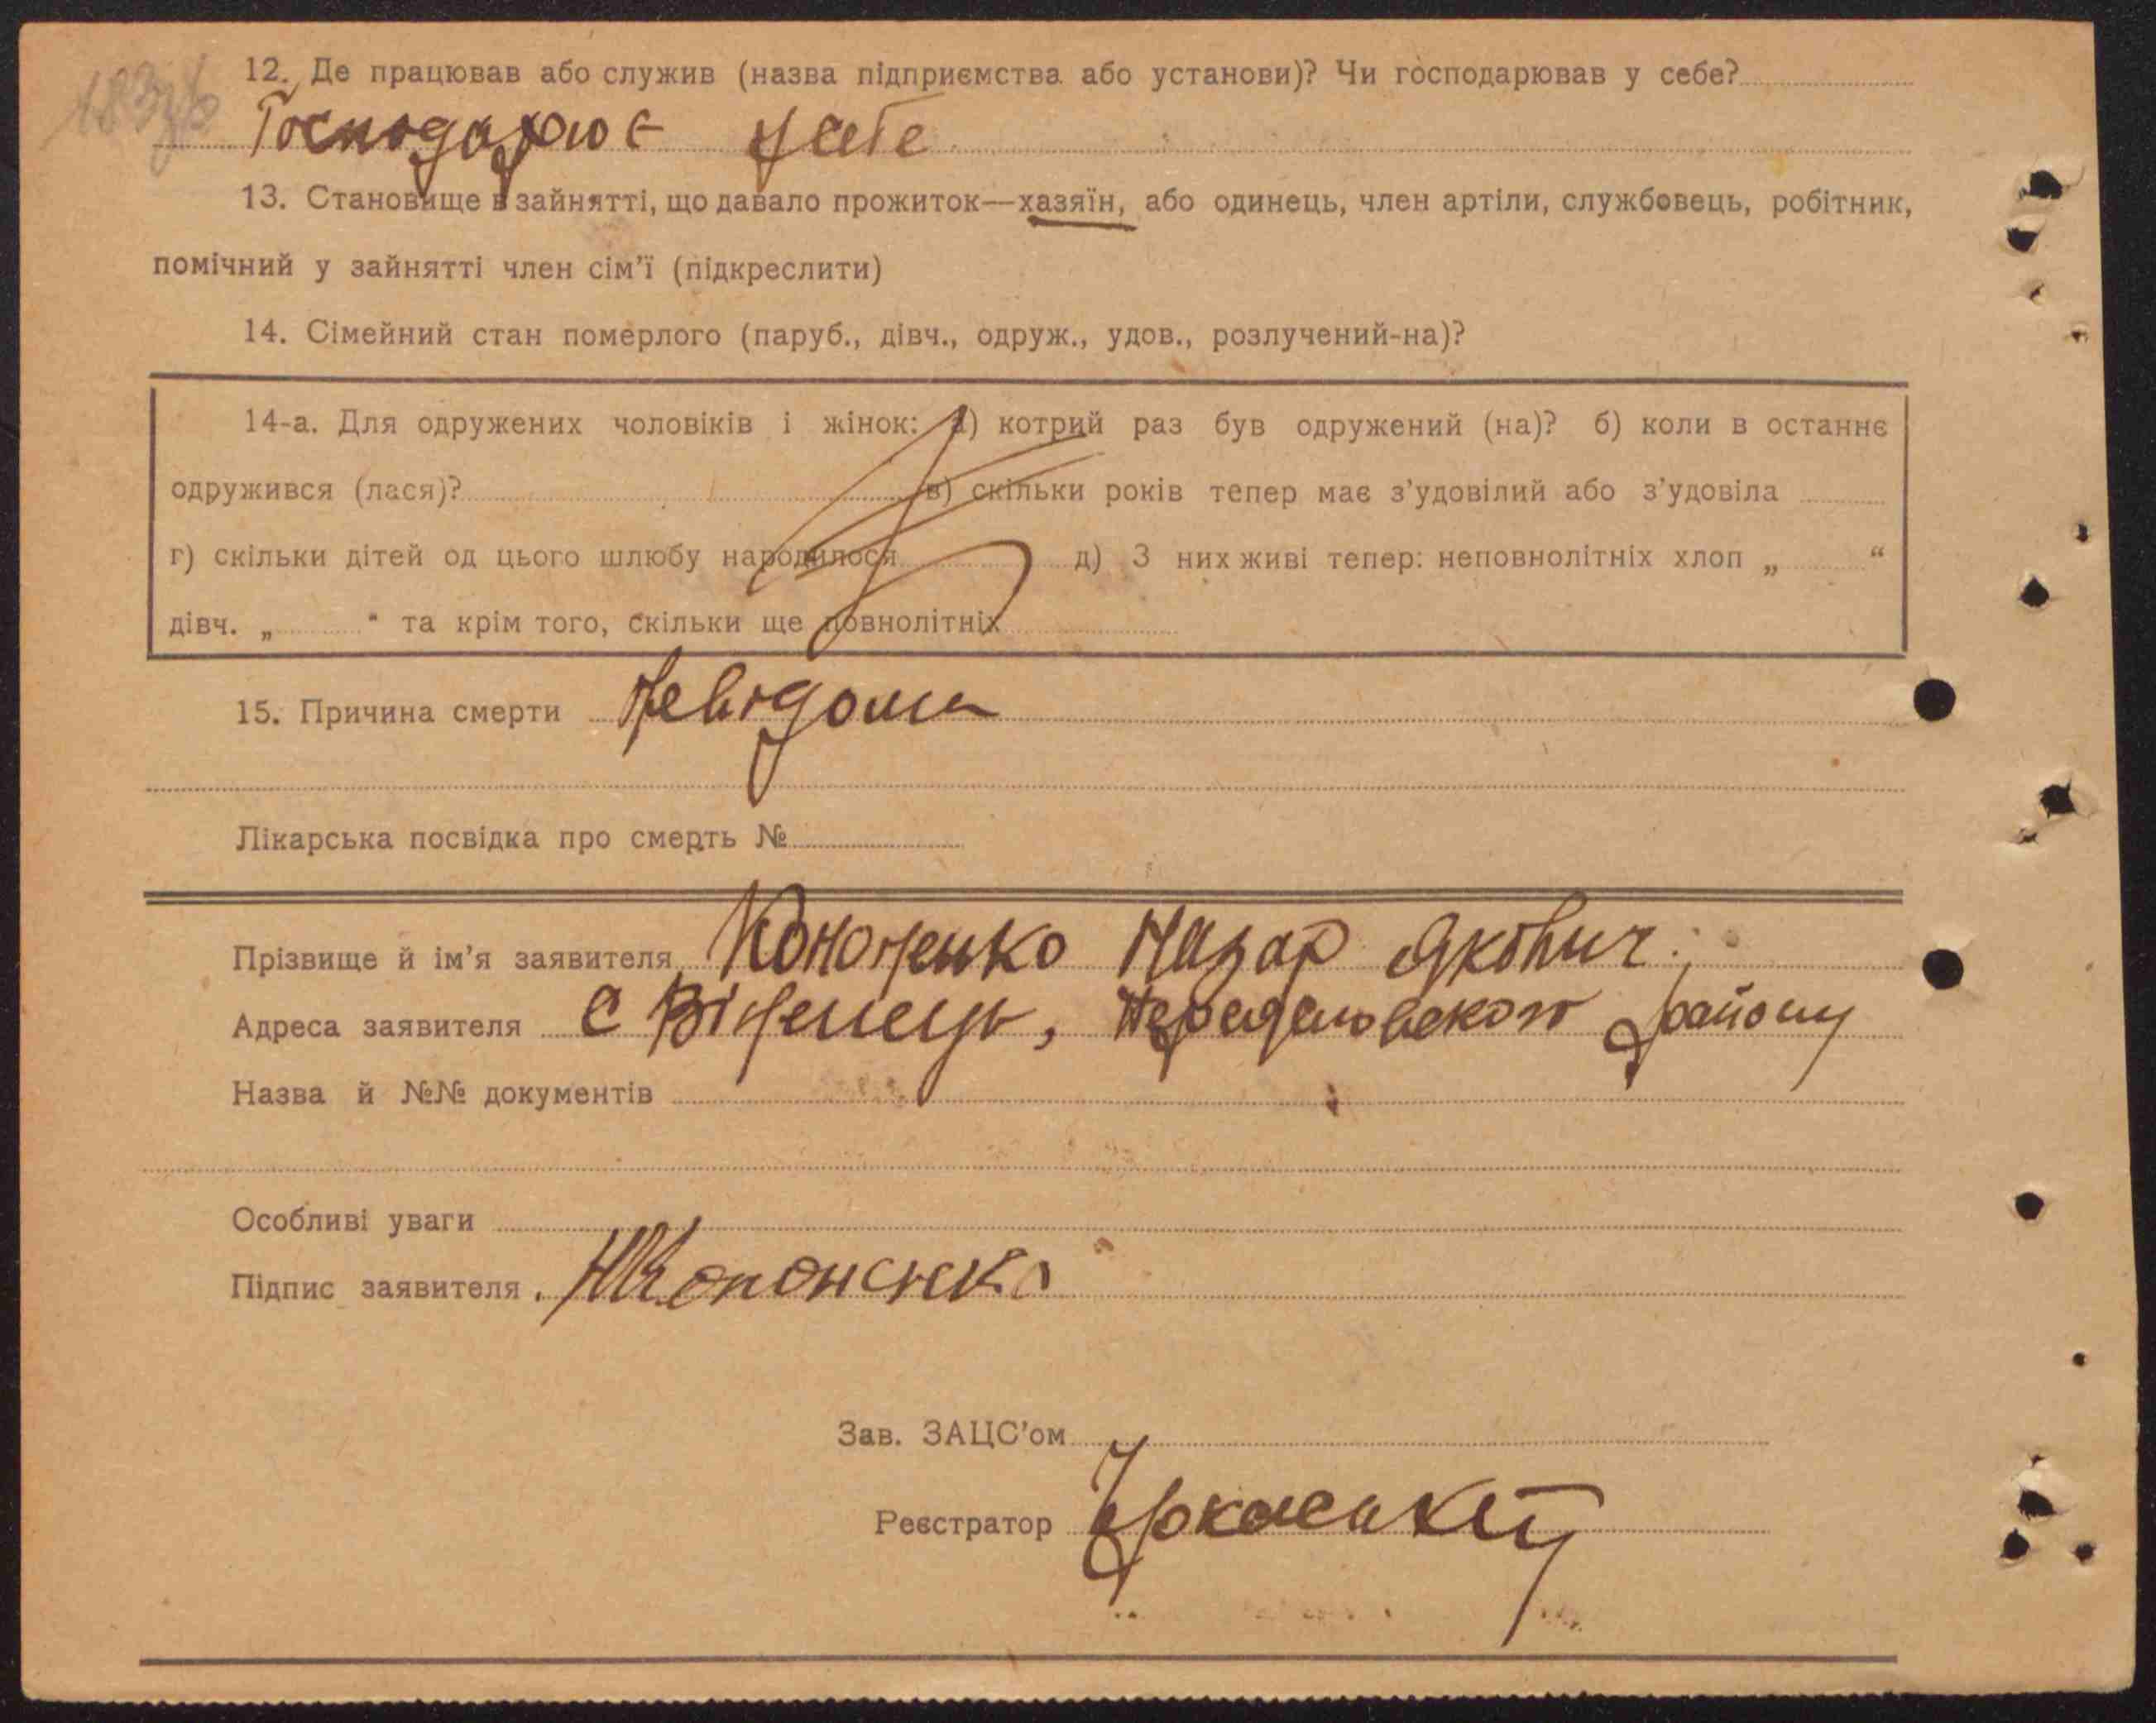 12. Де працював або служив (назва підприємства або установи)? Чи господарював у себе?
Господарює у себе
13. Становище в зайнятті, що давало прожиток—хазяїн, або одинець, член артіли, службовець, робітник,
помічний у зайнятті член сім’ї (підкреслити)
14. Сімейний стан померлого (паруб., дівч., одруж., удов., розлучений-на)?
14-а. Для одружених чоловіків і жінок: а) котрий раз був одружений (на)? б) коли в останнє
одружився (лася)? в) скільки років тепер має з’удовілий або з’удовіла
г) скільки дітей од цього шлюбу народилося д) З них живі тепер: неповнолітніх хлоп „ “
дівч. „ “ та крім того, скільки ще повнолітніх
15. Причина смерти Невідома
Лікарська посвідка про смерть №
Прізвище й ім’я заявителя Кононенко Назар Якович
Адреса заявителя с Віненець, району
Назва й №№ документів
Особливі уваги
Підпис заявителя Н Кононенко
Зав. ЗАЦС’ом
Реєстратор